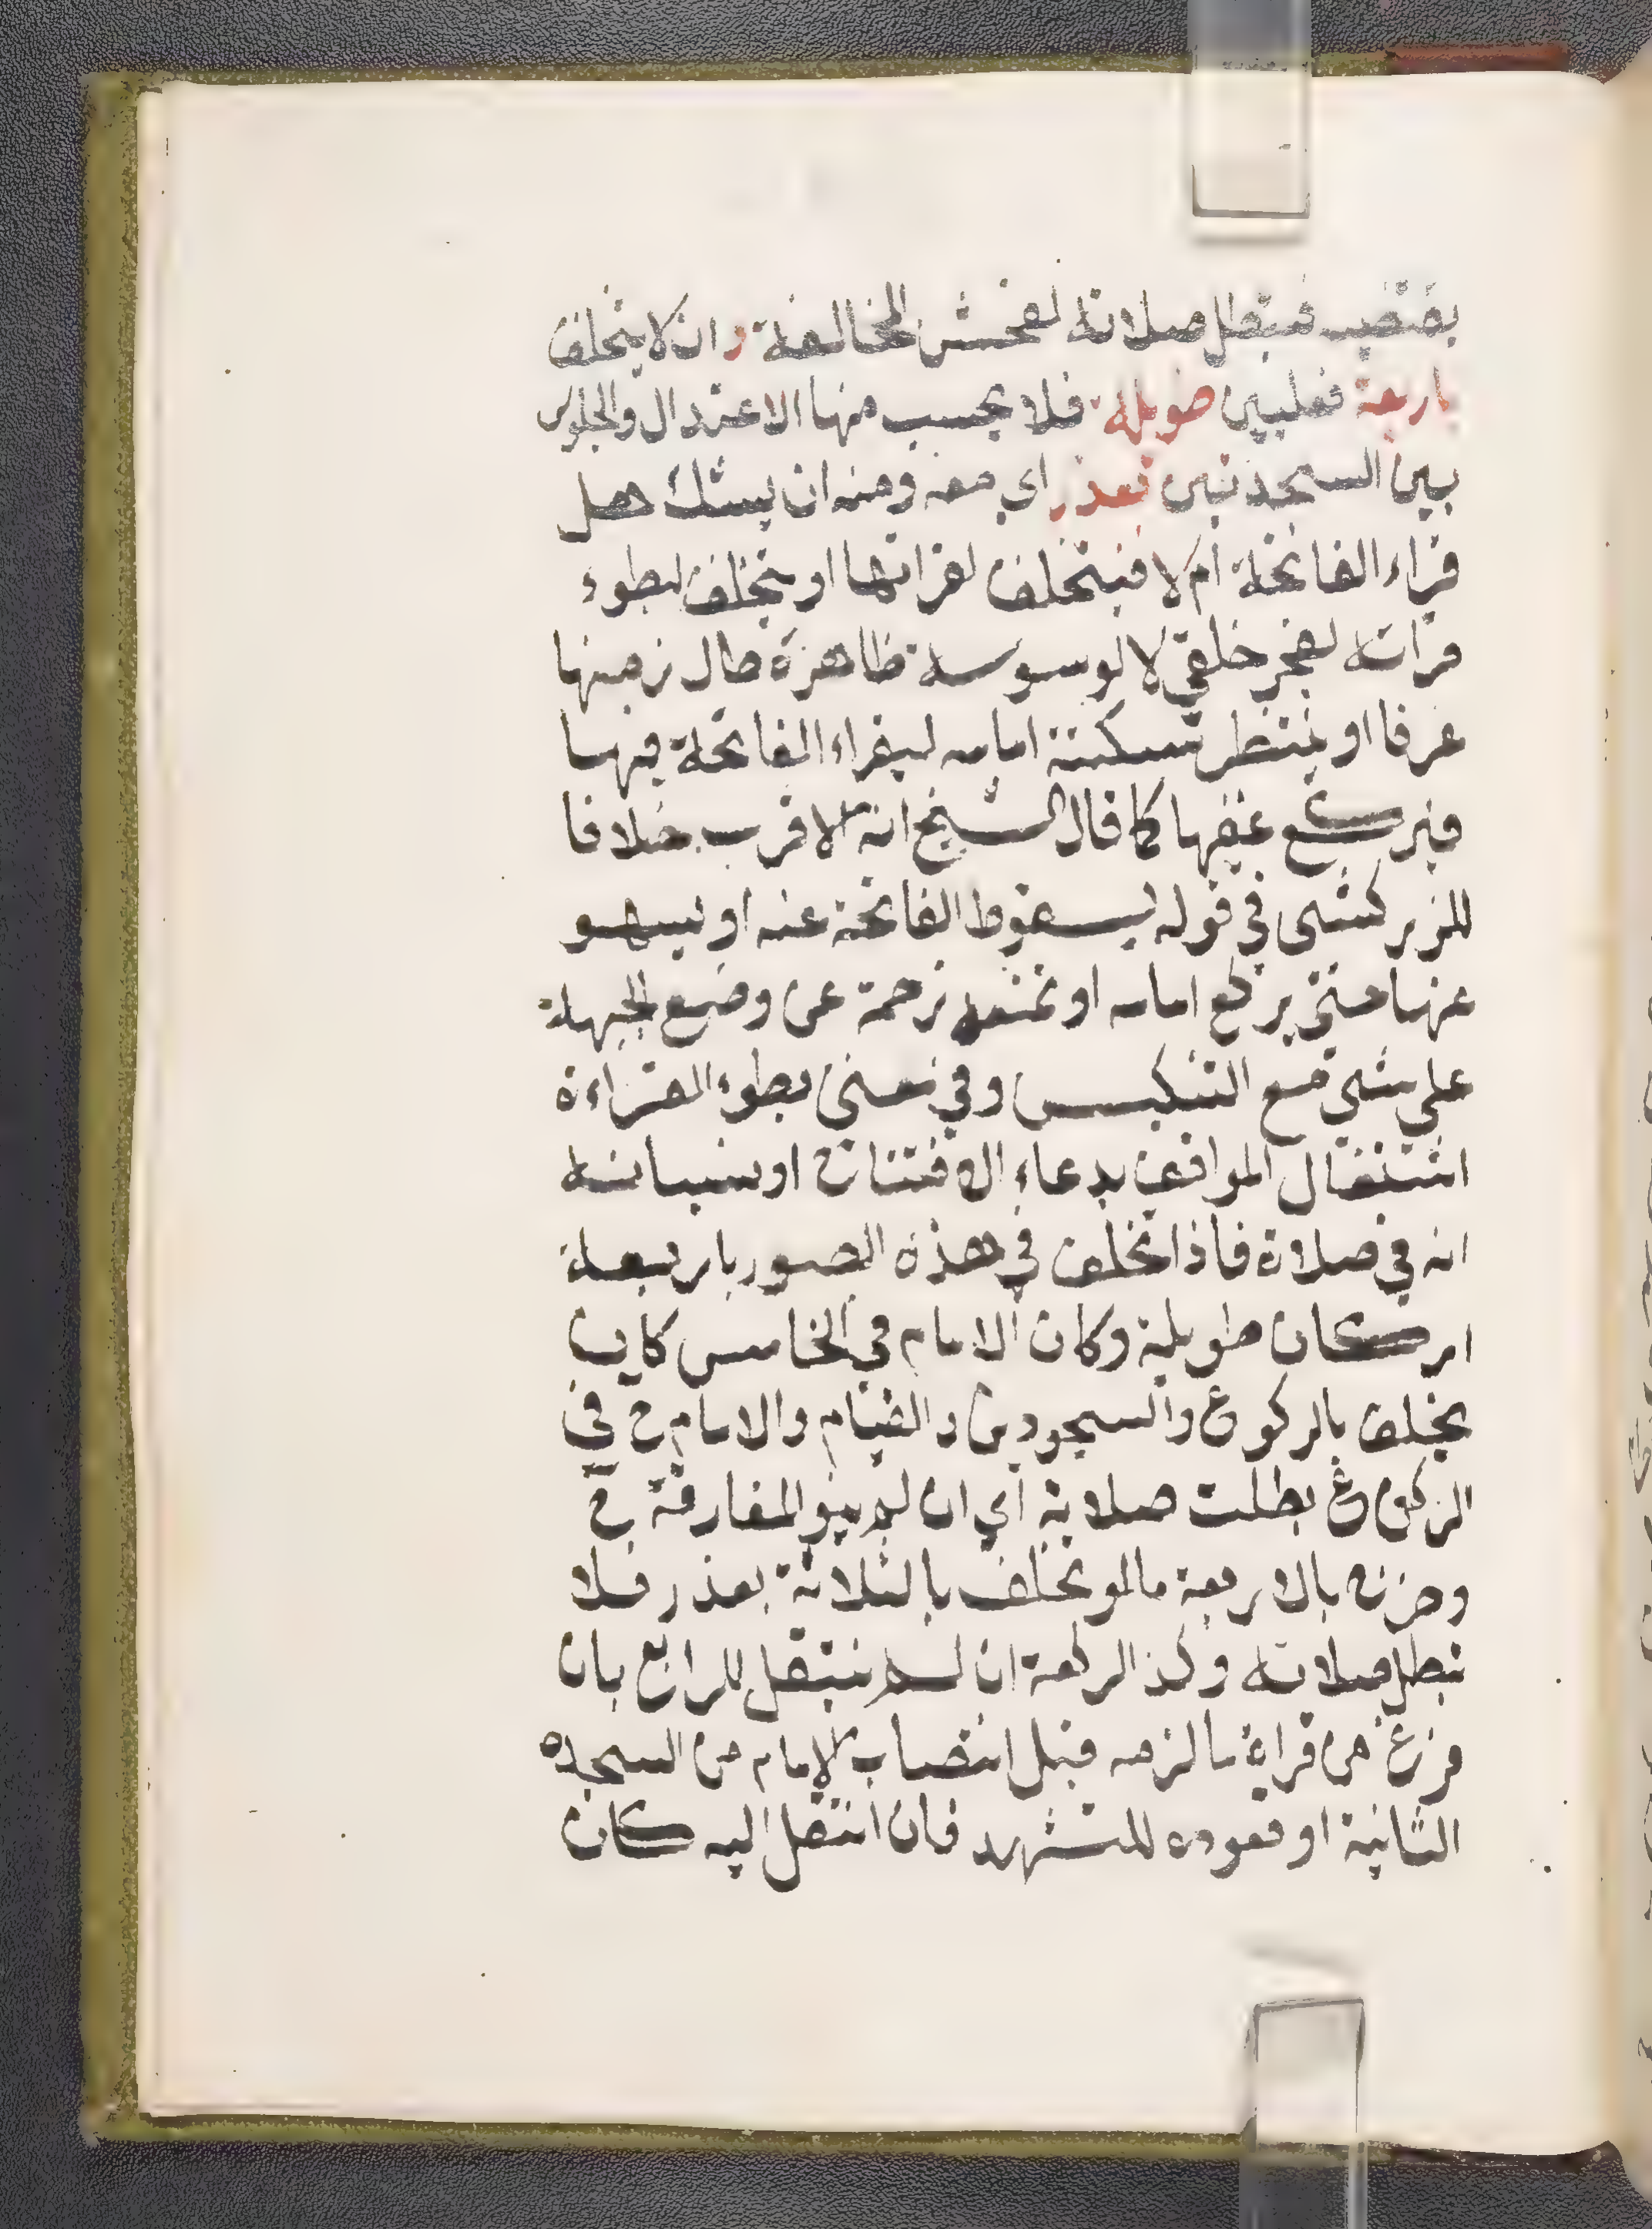 بتقصير فتبطل صلاته لفحش المخالفة وان لا يتخلف
باربعة فعليين طويلة فلا يحسب منها الاعتدال والجلوس
بين السجدتين بعذر اي معه ومنه ان يشك هل
قراء الفاتحة ام لا فيتخلف لقراتها او يتخلف لبطوء
قراته لعجز خلقي لا لوسوسة ظاهرة طال زمنها
عرفا او ينتظر سكتة امامه ليقراء الفاتحة فيها
فيركع عقبها كما قال الشيخ انه الاقرب خلافا
للزركشي في قوله بسقوط الفاتحة عنه او يسهو
عنها حتى يركع امامه او تمنعه زحمة عن وضع الجبهة
على شي مع التنكيس وفي معنى بطوء القراءة
اشتغال الموافق بدعاء الافتتاح او نسيانه
انه في صلاة فاذا تخلف في هذه الصور باربعة
اركان طويلة وكان الامام في الخامس كان
تخلف بالركوع والسجودين والقيام والامام ح في
الركوع بطلت صلاته اي ان لم ينو المفارقة ح
وخرج بالاربعة ما لو تخلف بالثلاثة بعذر فلا
تبطل صلاته وكذا الركعة ان لم ينتقل للرابع بان
فرغ من قراءة ما لزمه قبل انتصاب الامام من السجده
الثانية او قعوده للتشهد فان انتقل اليه كان